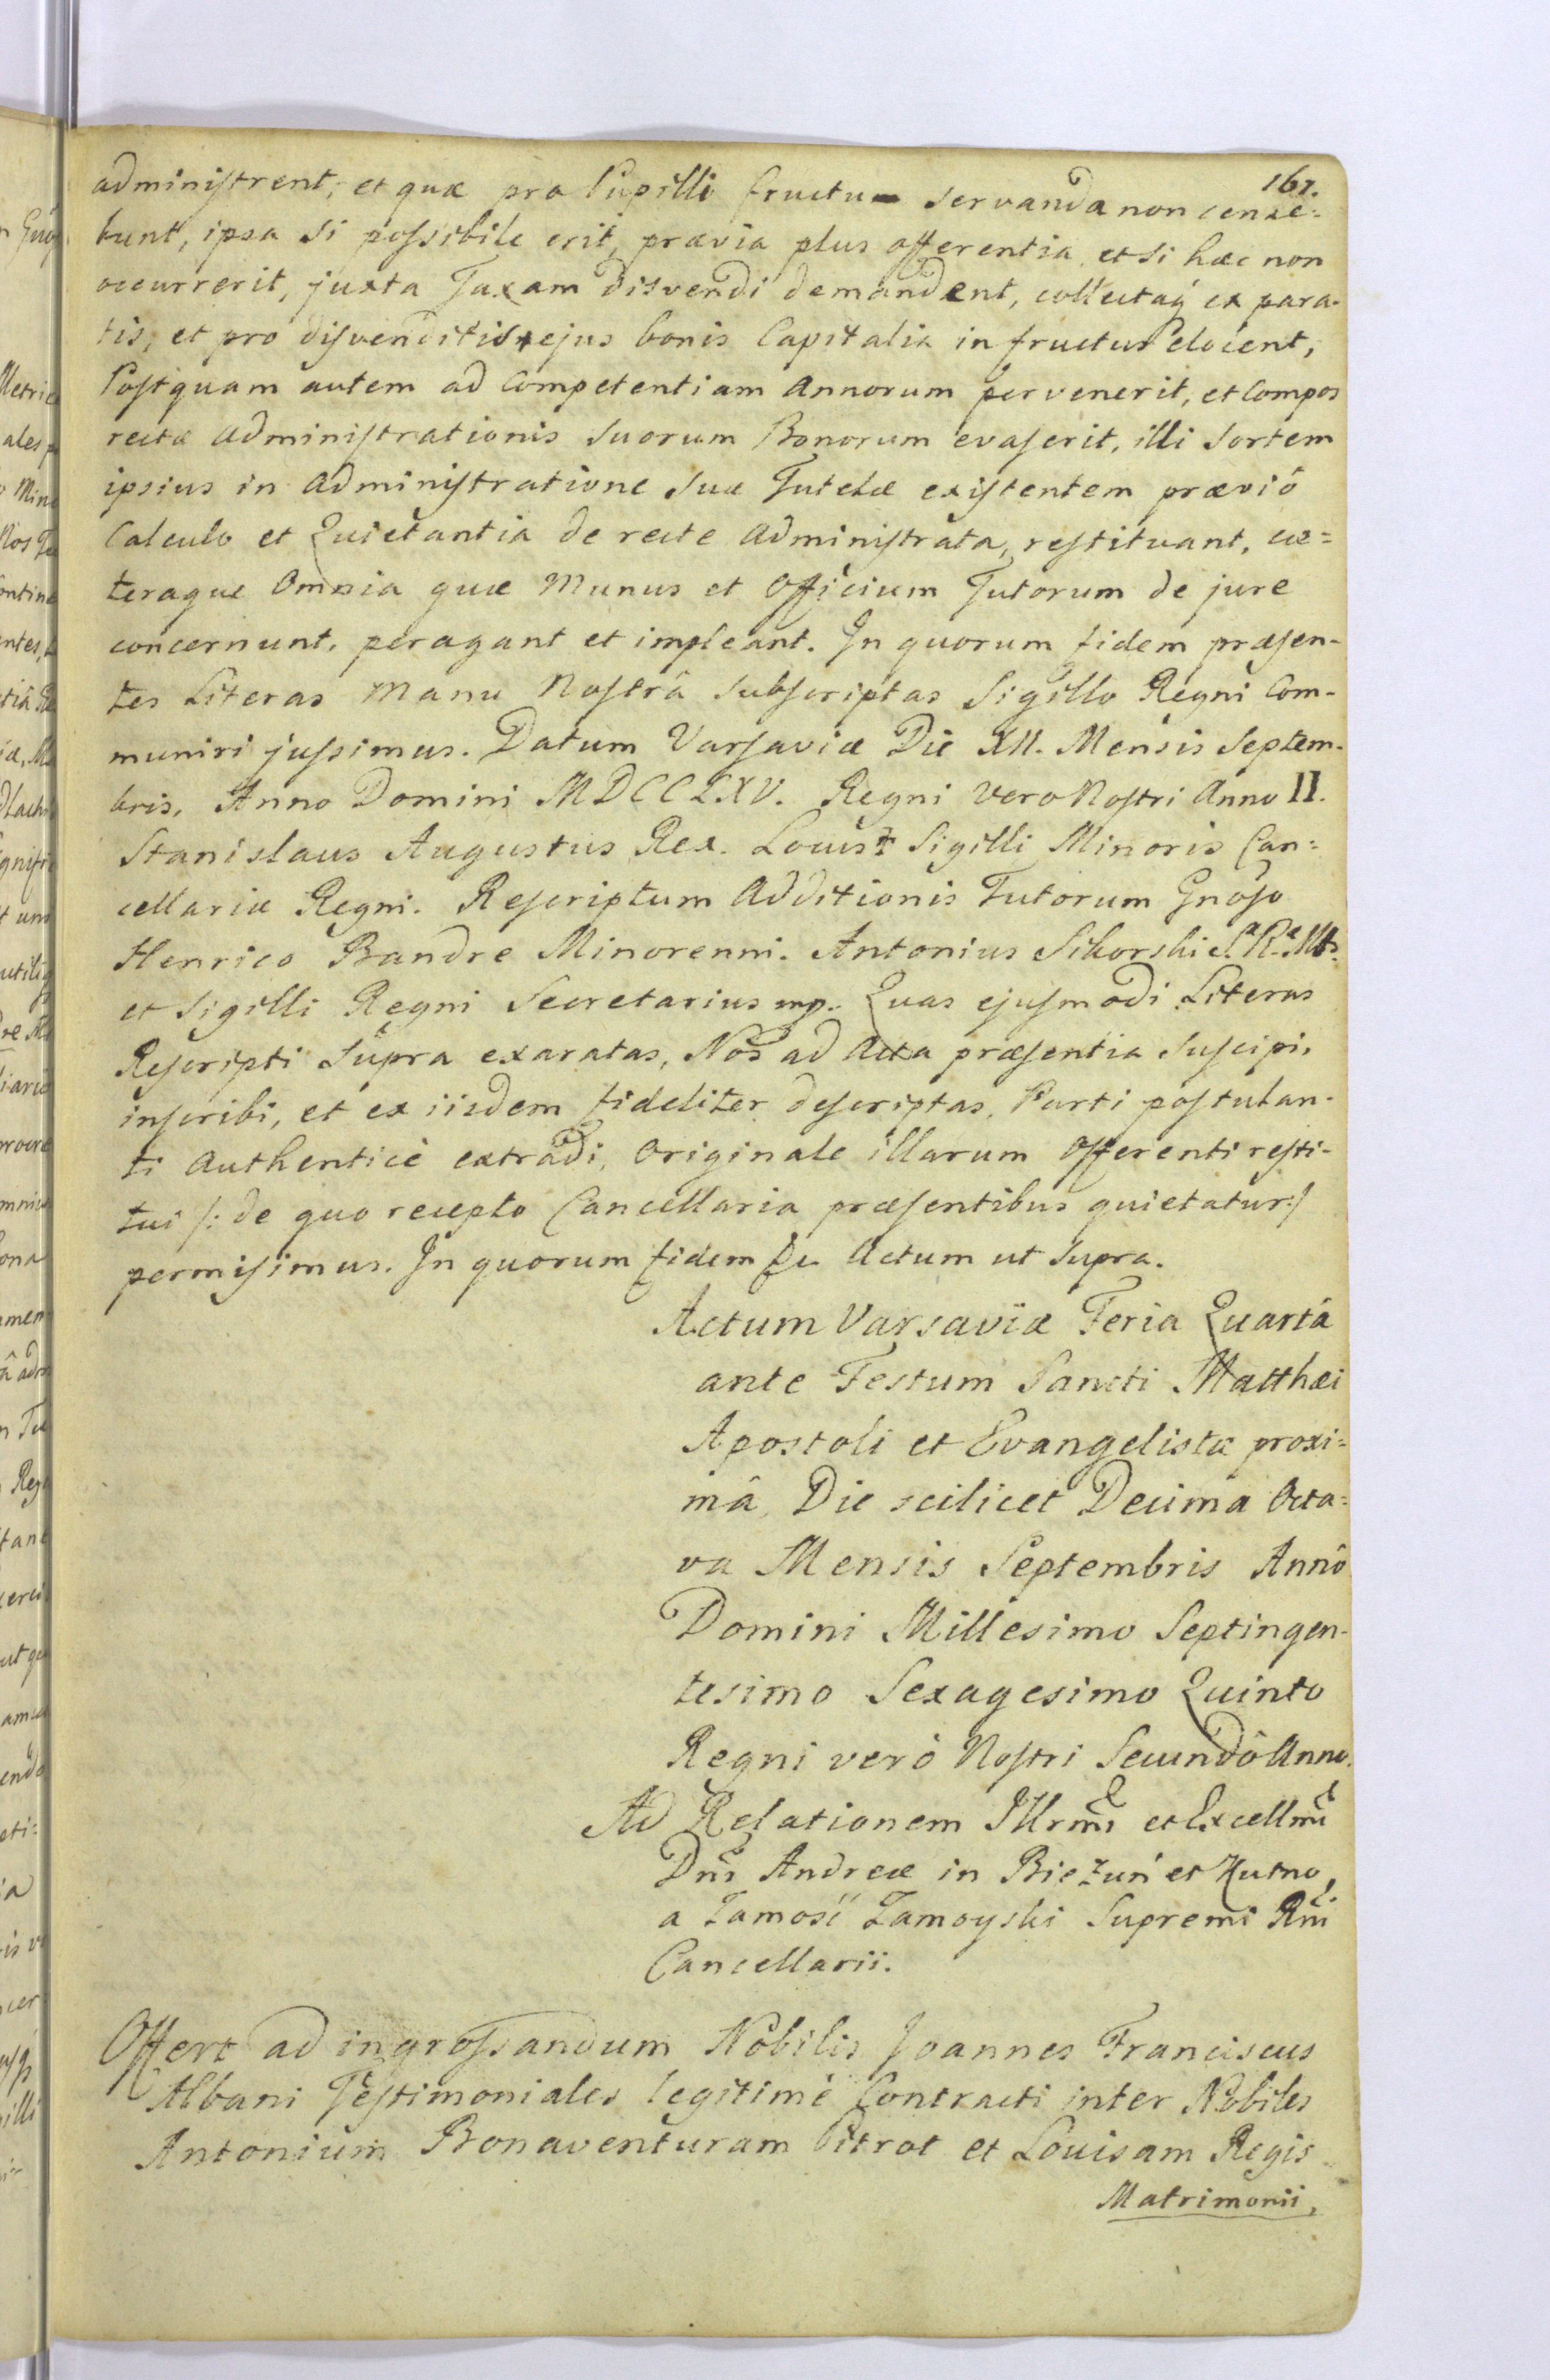 161.
administrent, et quæ pro Pupilli fructu servanda non cense=
bunt, ipsa si possibile erit, prævia plus offerentia, et si hæc non
occurrerit, juxta Taxam disvendi demandent, collectaq ex para-
tis, et pro disvenditis ejus bonis Capitalia in fructus elocent,
Postquam autem ad Competentiam Annorum pervenerit, et Compos
rectæ Administrationis Suorum Bonorum evaserit, illi Sortem
ipsius in Administratione Suæ Tutelæ existentem præviô
Calculo et Quietantia de recte Administrata, restituant, cæ=
teraque Omnia quæ Munus et Officium Tutorum de jure
concernunt, peragant et impleant. In quorum fidem præsen-
tes Literas Manu Nostrâ Subscriptas Sigillo Regni Com-
muniri jussimus. Datum Varsaviæ Die XII. Mensis Septem-
bris, Anno Domini MDCCLXV. Regni Vero Nostri Anno II.
Stanislaus Augustus Rex. Locus Sigilli Minoris Can=
cellariæ Regni. Rescriptum Additionis Tutorum Gnoso
Henrico Bandre Minorenni. Antonius Sikorski S. R. M.
et Sigilli Regni Secretarius mp. Quas ejusmodi Literas
Rescripti Supra exaratas, Nos ad Acta præsentia Suscipi,
inscribi, et ex iisdem fideliter descriptas, Parti postulan-
ti Authenticè extradi, Originale illarum Offerenti resti-
tui /: de quo recepto Cancellaria præsentibus quietatur :/
permisimus. In quorum fidem Actum ut Supra.
Actum Varsaviæ Feria Quartâ
ante Festum Sancti Matthæi
Apostoli et Evangelistæ proxi=
mâ, Die scilicet Decima Octa=
va Mensis Septembris Annô
Domini Millesimo Septingen-
tesimo Sexagesimo Quinto
Regni verò Nostri Secundô Anno.
Ad Relationem Illrmi et Excellmi
Dni Andreæ in Bieżuń et Kutno,
a Zamość Zamoyski Supremi Rni
Cancellarii.
Offert ad ingrossandum Nobilis Joannes Franciscus
Albani Testimoniales legitimè Contracti inter Nobiles
Antonium Bonaventuram Pitrot et Louisam Regis
Matrimonii,